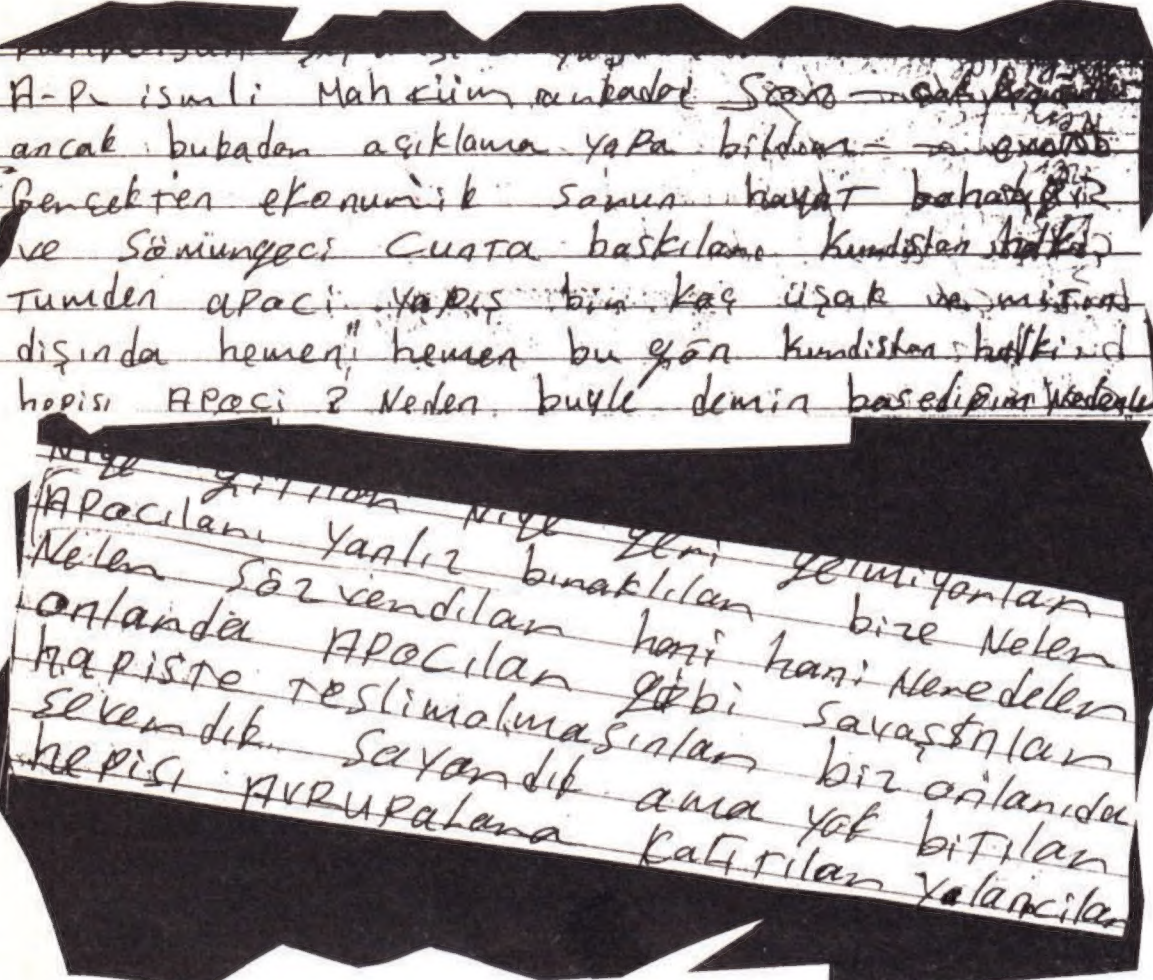 A-P ismli Mahküüm
ancak bukadar açıklama yapa bildim
Gerçekten ekonumik sorun hayat
ve Sömürgeci Cunta baskıları Kurdistan halkı
Tumden aPoci yapış bir kaç üşak ve
dışında hemen hemen bu gön kurdistan halki
hepisi APoci ? Neden buyle demin basediğim Nedenle
Niye gitiler Niye geri gelmiyorlar
APocıları Yanlız bıraktılar bize Neler
Neler söz verdılar hani hani Neredeler
onlarda APocılar gibi savaşsınlar
hapiste teslimolmasınlar biz onlarıda
severdık sayardık ama yok bitıler
hepisi AVRUPalara Kaçtılar yalancılar